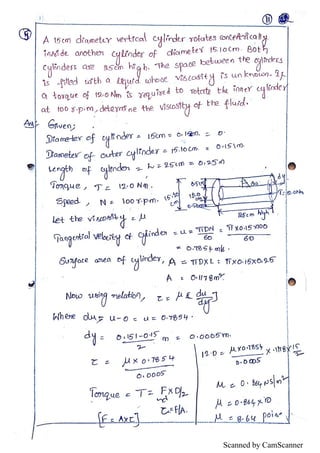 A 15cm diameter vertical cylinder rotates concentrically
inside another cylinder of diameter 15.10cm Both
cylinders are 25cm high. The space between the cylinders
is filled with a liquid whose viscosity is unknown. If
a torque of 12.0Nm is required to rotate the inner cylinder
at 100 r.p.m, determine the viscosity of the fluid.
Given;
Diameter of cylinder = 15cm =
Diameter of outer cylinder = 15.10cm = 0.151m
Length of cylinder = L = 25cm = 0.25m
Torque, T = 12.0 Nm.
Speed, N = 100 r.p.m.
Let the viscosity = μ
Tangential velocity of cylinder = u = πDN/60 = π×0.15×100/60
= 0.7854 m/s.
Surface area of cylinder, A = πDXL = π×0.15×0.25
A = 0.1178m²
Now using relation, τ = μ [du/dy]
Where du = u-0 = u = 0.7854.
dy = 0.151-0.15/2 m = 0.0005m.
τ = μ × 0.7854/0.0005
12.0 = μ×0.7854/0.0005 × .1178 × .15/2
Torque = T = F×D/2
τ = F/A.
[F = A×τ]
μ = 0.864 NS/m²
μ = 0.864×10
μ = 8.64 poise
Scanned by CamScanner